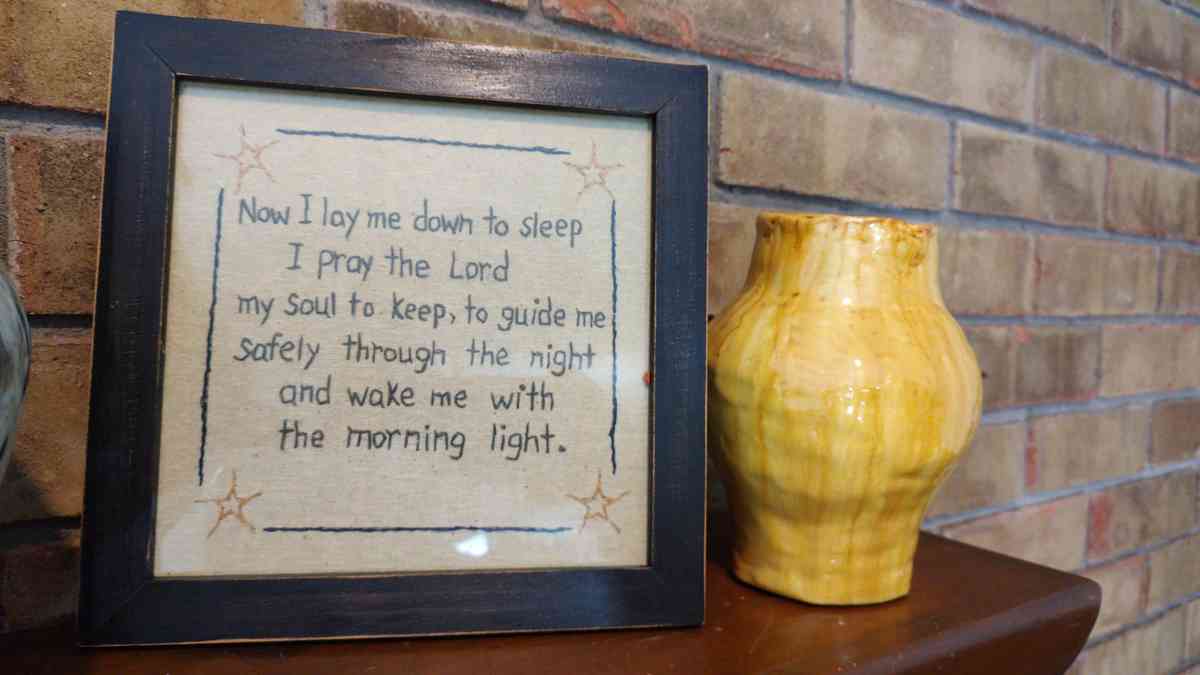 Now I lay me down to sleep
I pray the Lord
my soul to keep, to guide me
safely through the night
and wake me with
the morning light.